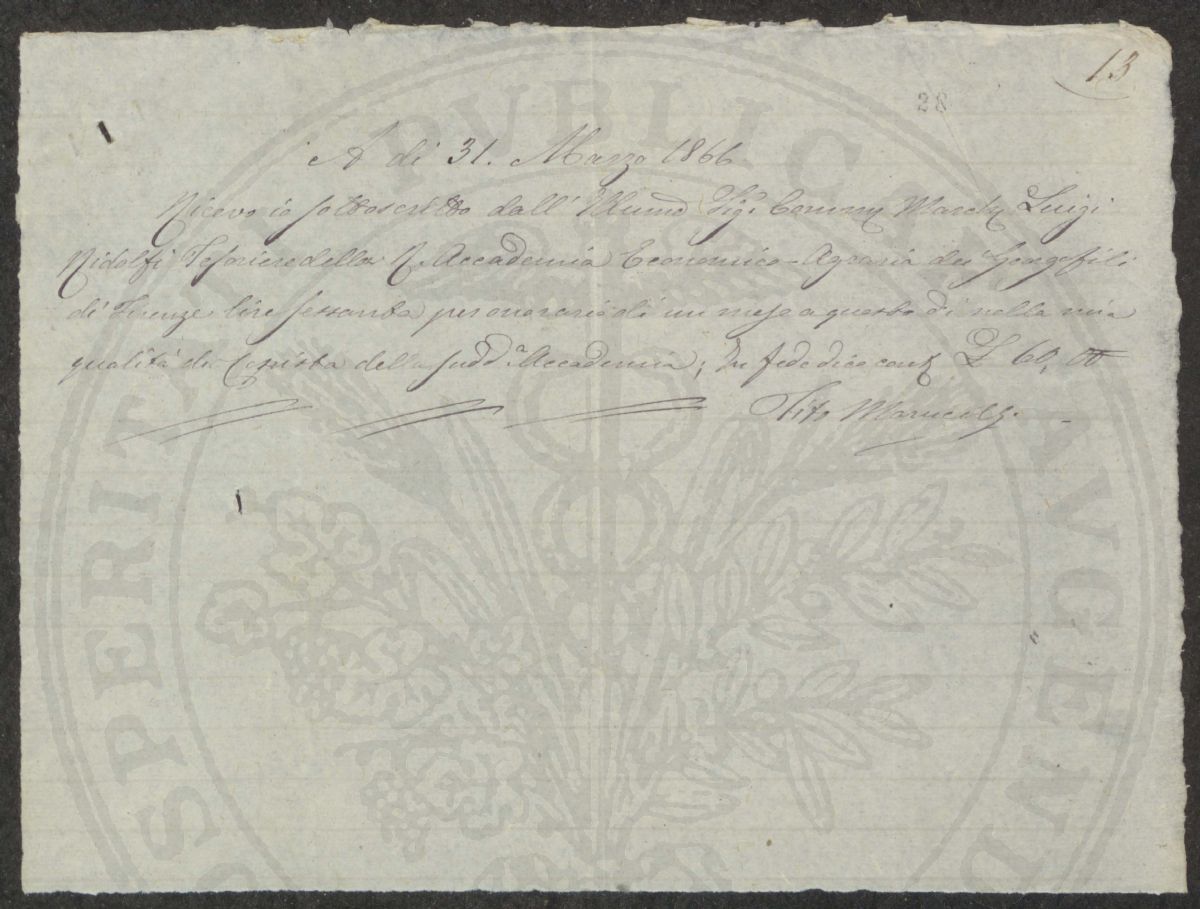 13
28
A dì 31. Marzo 1866
Ricevo io sottoscritto dall' Illumo Sigr Comm March Luigi
Ridolfi Tesoriere della R. Accademia Economico-Agraria dei Georgofili
di Firenze lire sessanta per onorario di un mese a questo dì nella mia
qualità di Copista della sudda Accademia; In fede dico cont £ 60,00
Tito
PROSPERITATI PUBLICAE AUGENDAE